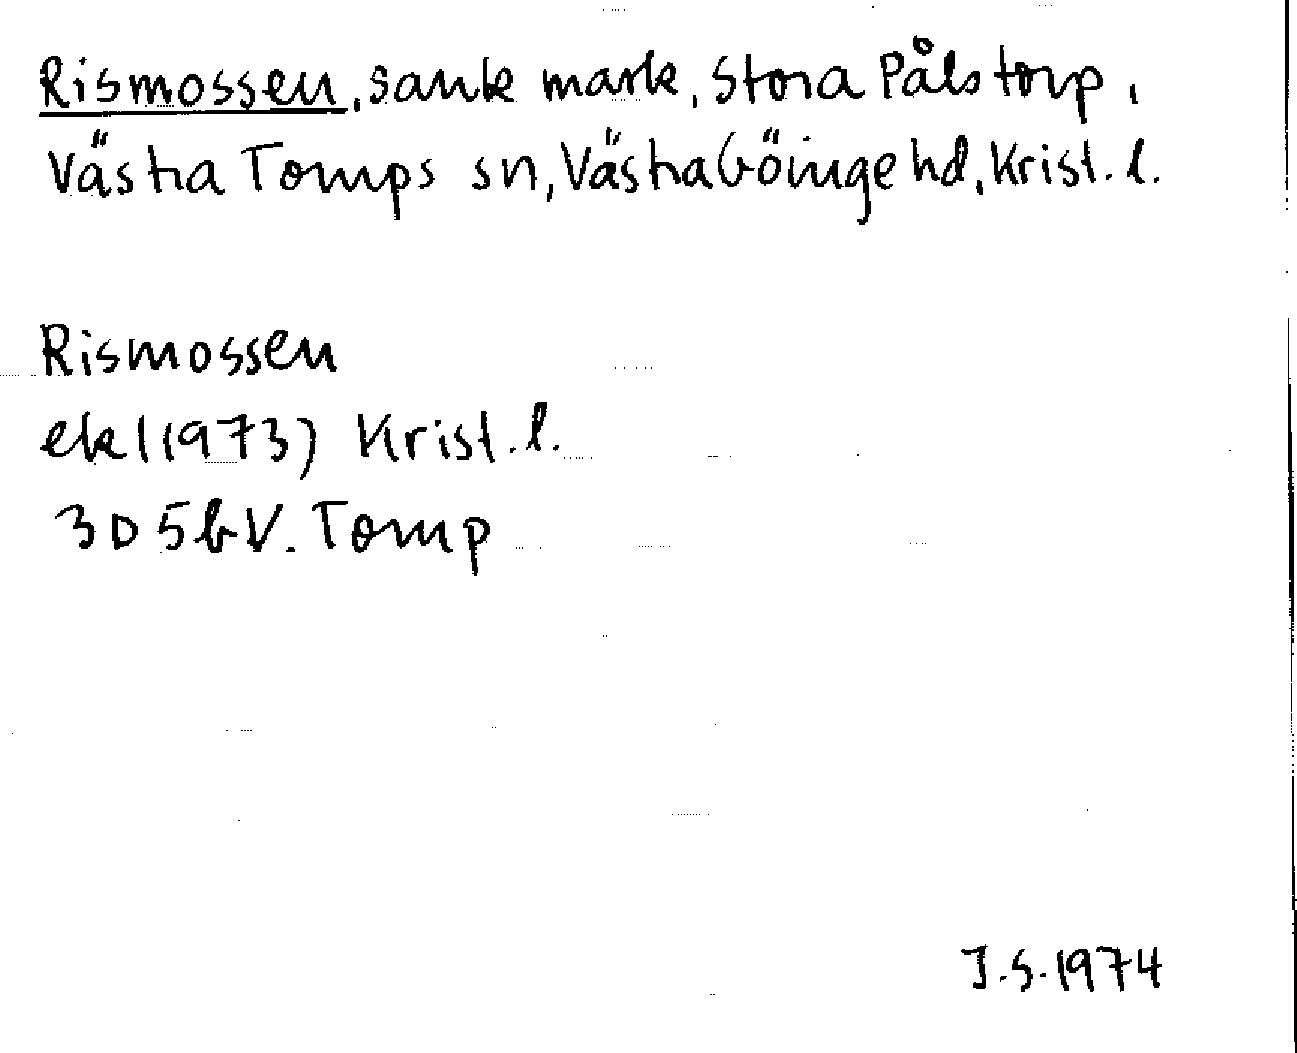 Rismossen, sank mark, Stora Pålstorp,
Västra Torups sn, Västra Göinge hd, Krist. l.
Rismossen
ek1(1973) Krist. l.
3D5b V. Torup
J.S. 1974